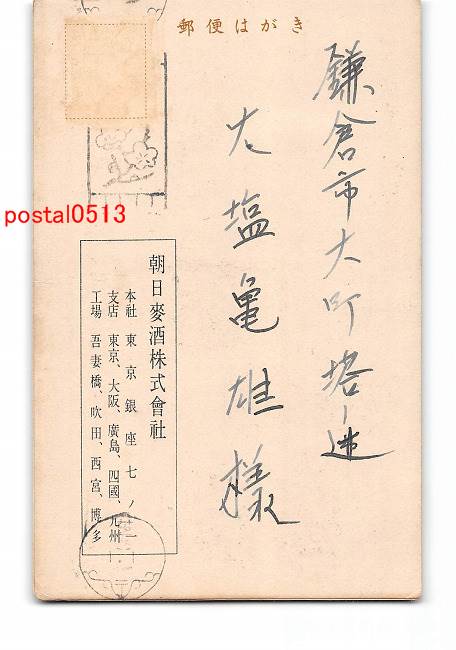 郵便はがき
鎌倉市大町塔之辻
大塩亀雄様
朝日麥酒株式會社
本社 東京銀座七ノ一
支店 東京、大阪、廣島、四國、九州
工場 吾妻橋、吹田、西宮、博多
postal0513